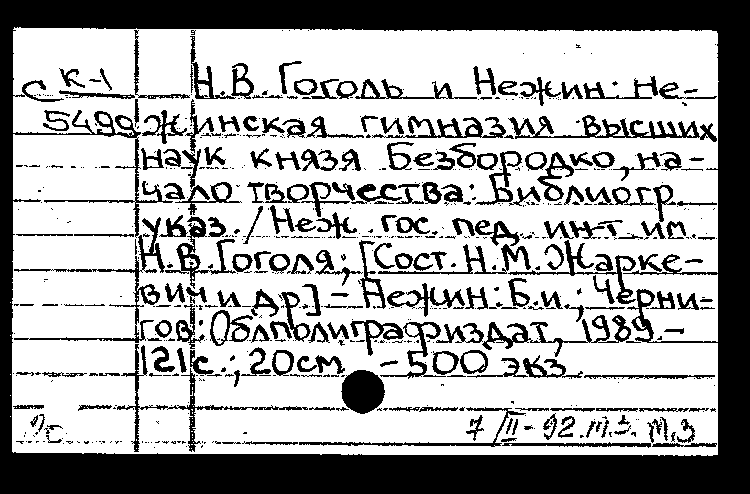 С К-1 Н.В. Гоголь и Нежин: Не-
5499 жинская гимназия высших
наук князя Безбородко, на-
чало творчества: Библиогр.
указ. / Неж. гос. пед. ин-т им.
Н.В. Гоголя; [Сост. Н.М. Жарке-
вич и др.] – Нежин: Б.и.; Черни-
гов: Облполиграфиздат, 1989.–
121с.; 20см – 500 экз.
7/II-92.